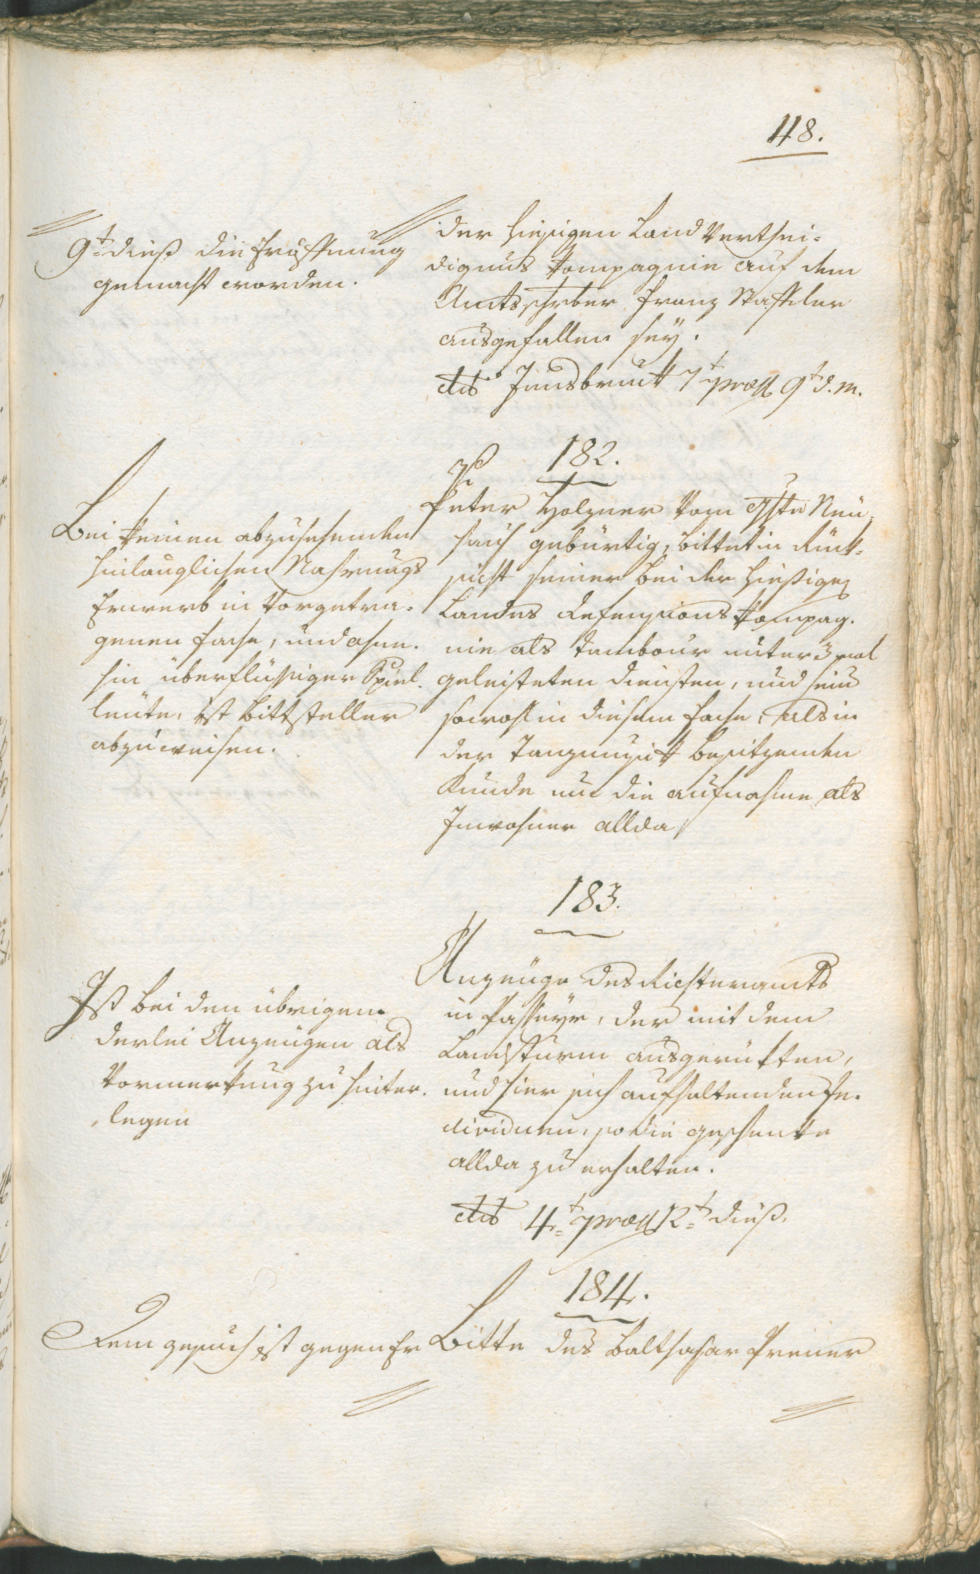 48.
9t dieß die Eröffnung
gemacht worden.
der hiesigen Land Verthei-
digungs Kompagnie auf dem
Amtsschrber Franz Staffler
ausgefallen sey.
dto Innsbruck 7t præs 9t d. m.
182.
Bei keinen abzusehenden
hinlänglichen Nahrungs
Erwerb in vorgetra-
genen Fache, und ohne-
hin überflüßiger Spiel-
leute, ist Bittsteller
abzuweisen.
Peter Holzner vom Neu-
haus gebürtig, bittet in Rück-
sicht seiner bei der hiesigen
Landes Defensions Kompag-
nie als Tambour unter 3 mal
geleisteten Diensten, und sein
sowohl in diesem Fache, als in
der Tanzmusik besitzenden
Kunde um die Aufnahme als
Inwohner allda
183.
Ist bei den übrigen
derlei Anzeigen als
Vormerkung zu hinter-
legen
Anzeige des Richteramts
in Passeyr, der mit dem
Landsturm ausgerükten,
und hier sich aufhaltenden In-
dividuen, so die Geschenke
allda zu erhalten.
dto 4t præs 12t dieß.
184.
Dem Gesuch ist gegen Er
Bitte des Balthasar Preuer